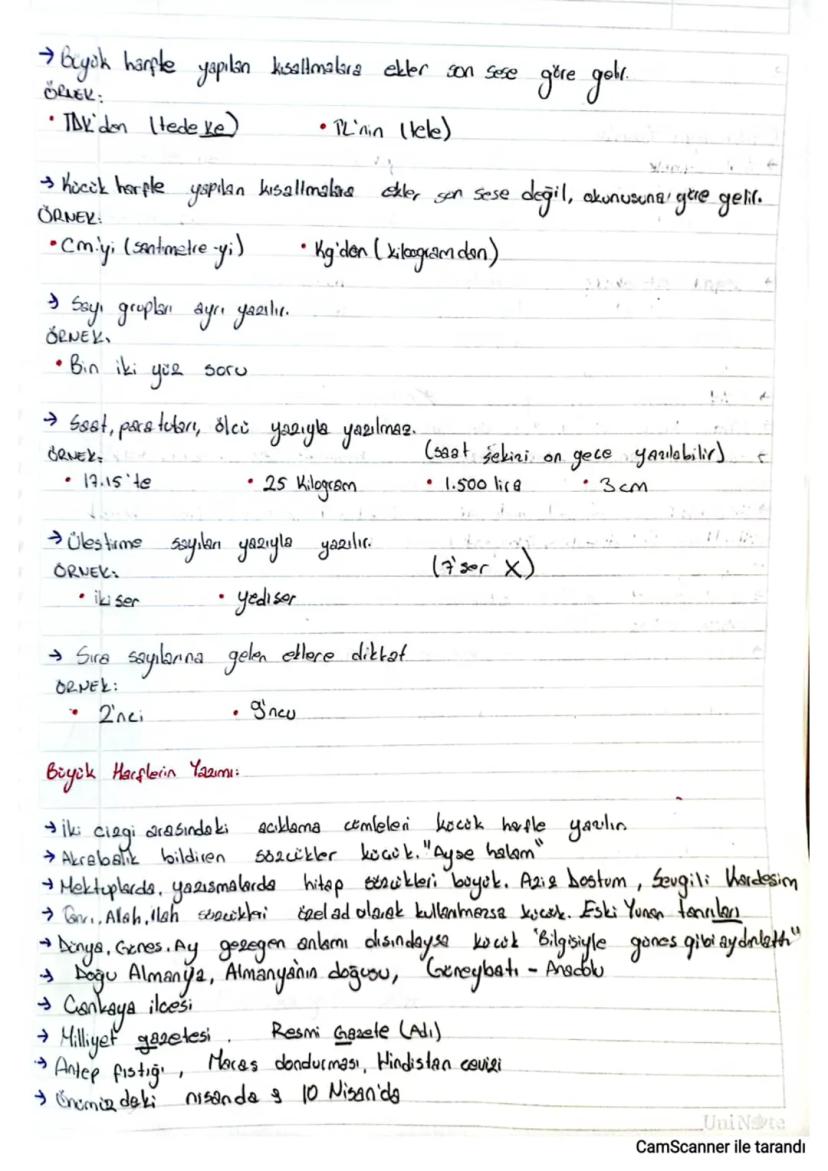 → Büyük harfle yapılan kısaltmalara ekler son sese göre gelir.
ÖRNEK:
• TDK'den (tedeke) • TL'nin (tele)
→ Küçük harfle yapılan kısaltmalara ekler son sese değil, okunuşuna göre gelir.
ÖRNEK:
• Cm'yi (santimetre-yi) • Kg'den (kilogramdan)
→ Sayı grupları ayrı yazılır.
ÖRNEK:
• Bin iki yüz soru
→ Saat, para tutarı, ölçü yazıyla yazılmaz.
ÖRNEK: (saat sekizi on gece yazılabilir)
• 17.15'te • 25 Kilogram • 1.500 lira • 3 cm
→ Üleştirme sayıları yazıyla yazılır.
ÖRNEK: (7'şer X)
• ikişer • yedişer
→ Sıra sayılarına gelen eklere dikkat
ÖRNEK:
• 2'nci • 9'ncu
Büyük Harflerin Yazımı:
→ İki çizgi arasındaki açıklama cümleleri küçük harfle yazılır.
→ Akrabalık bildiren sözcükler küçük. "Ayşe halam"
→ Mektuplarda, yazışmalarda hitap sözcükleri büyük. Aziz Dostum, Sevgili Kardeşim
→ Tanrı, Allah, İlah sözcükleri özel ad olarak kullanılmazsa küçük. Eski Yunan tanrıları
→ Dünya, Güneş, Ay gezegen anlamı dışındaysa küçük "Bilgisiyle güneş gibi aydınlattı"
→ Doğu Almanya, Almanyanın doğusu, Güneybatı - Anadolu
→ Çankaya ilçesi
→ Milliyet gazetesi. Resmi Gazete (Adı)
→ Antep fıstığı, Maraş dondurması, Hindistan cevizi
→ Önümüzdeki nisanda 10 Nisan'da
UniNote
CamScanner ile tarandı